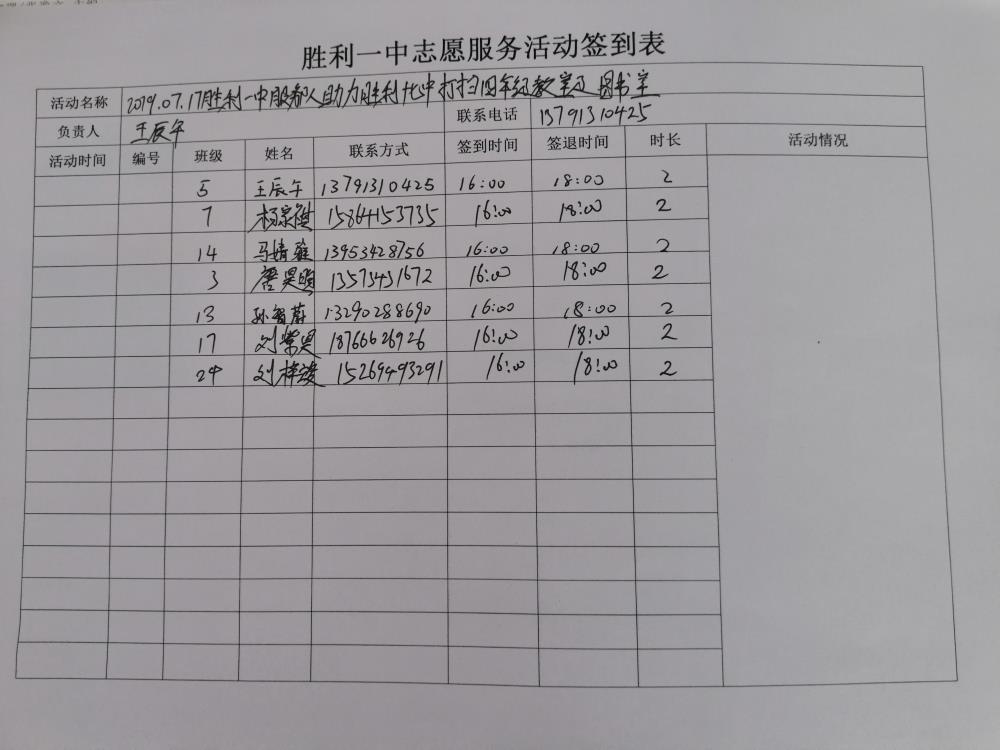 胜利一中志愿服务活动签到表
活动名称 2019.07.17胜利一中服务人助力胜利十七中打扫四年级教室及图书室
负责人 王辰午 联系电话 13791310425
活动时间 编号 班级 姓名 联系方式 签到时间 签退时间 时长 活动情况
5 王辰午 13791310425 16:00 18:00 2
7 杨宗祺 15864153735 16:00 18:00 2
14 马婧雅 13953428756 16:00 18:00 2
3 唐昊 13573451672 16:00 18:00 2
13 孙智蔚 13290288690 16:00 18:00 2
17 刘荣昊 18766626926 16:00 18:00 2
24 刘梓 15269493291 16:00 18:00 2